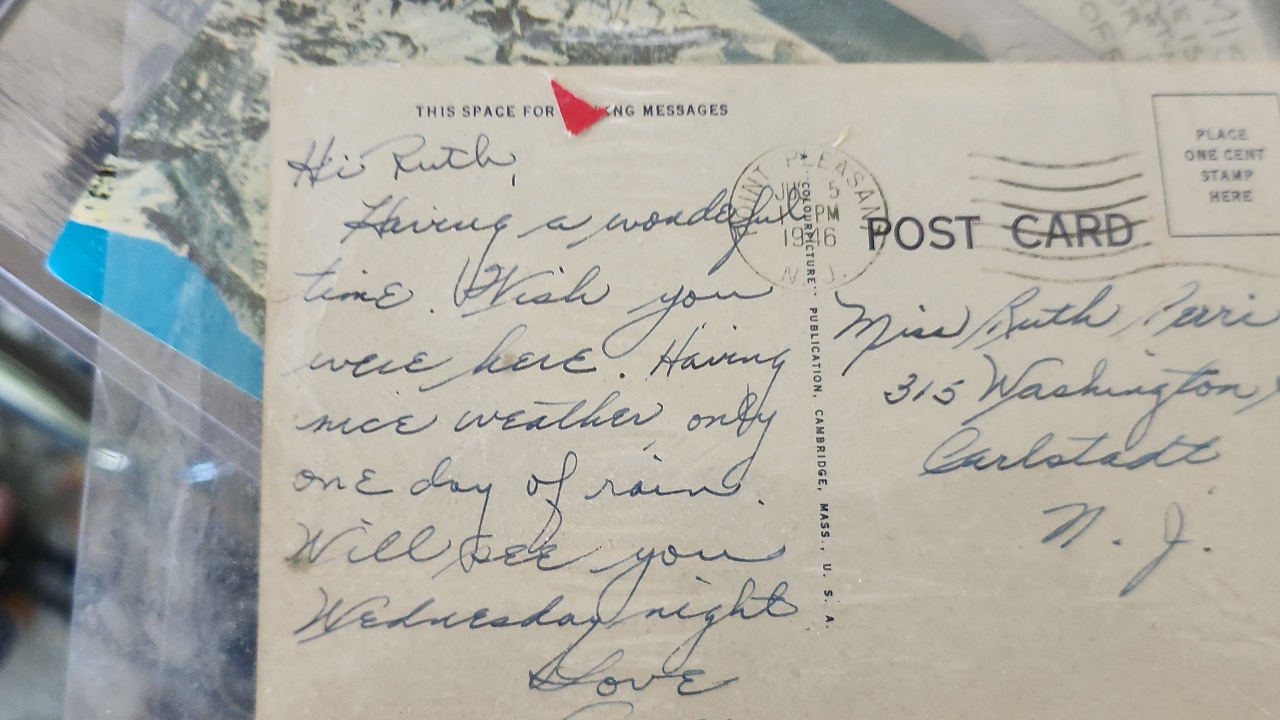 THIS SPACE FOR NG MESSAGES
Hi Ruth,
Having a wonderful
time. Wish you
were here. Having
nice weather only
one day of rain.
Will see you
Wednesday night
Love
POINT PLEASANT
5
PM
1946
N. J.
"COLOURPICTURE" PUBLICATION, CAMBRIDGE, MASS., U. S. A.
POST CARD
PLACE
ONE CENT
STAMP
HERE
Miss Ruth Perri
315 Washington
Carlstadt
N. J.